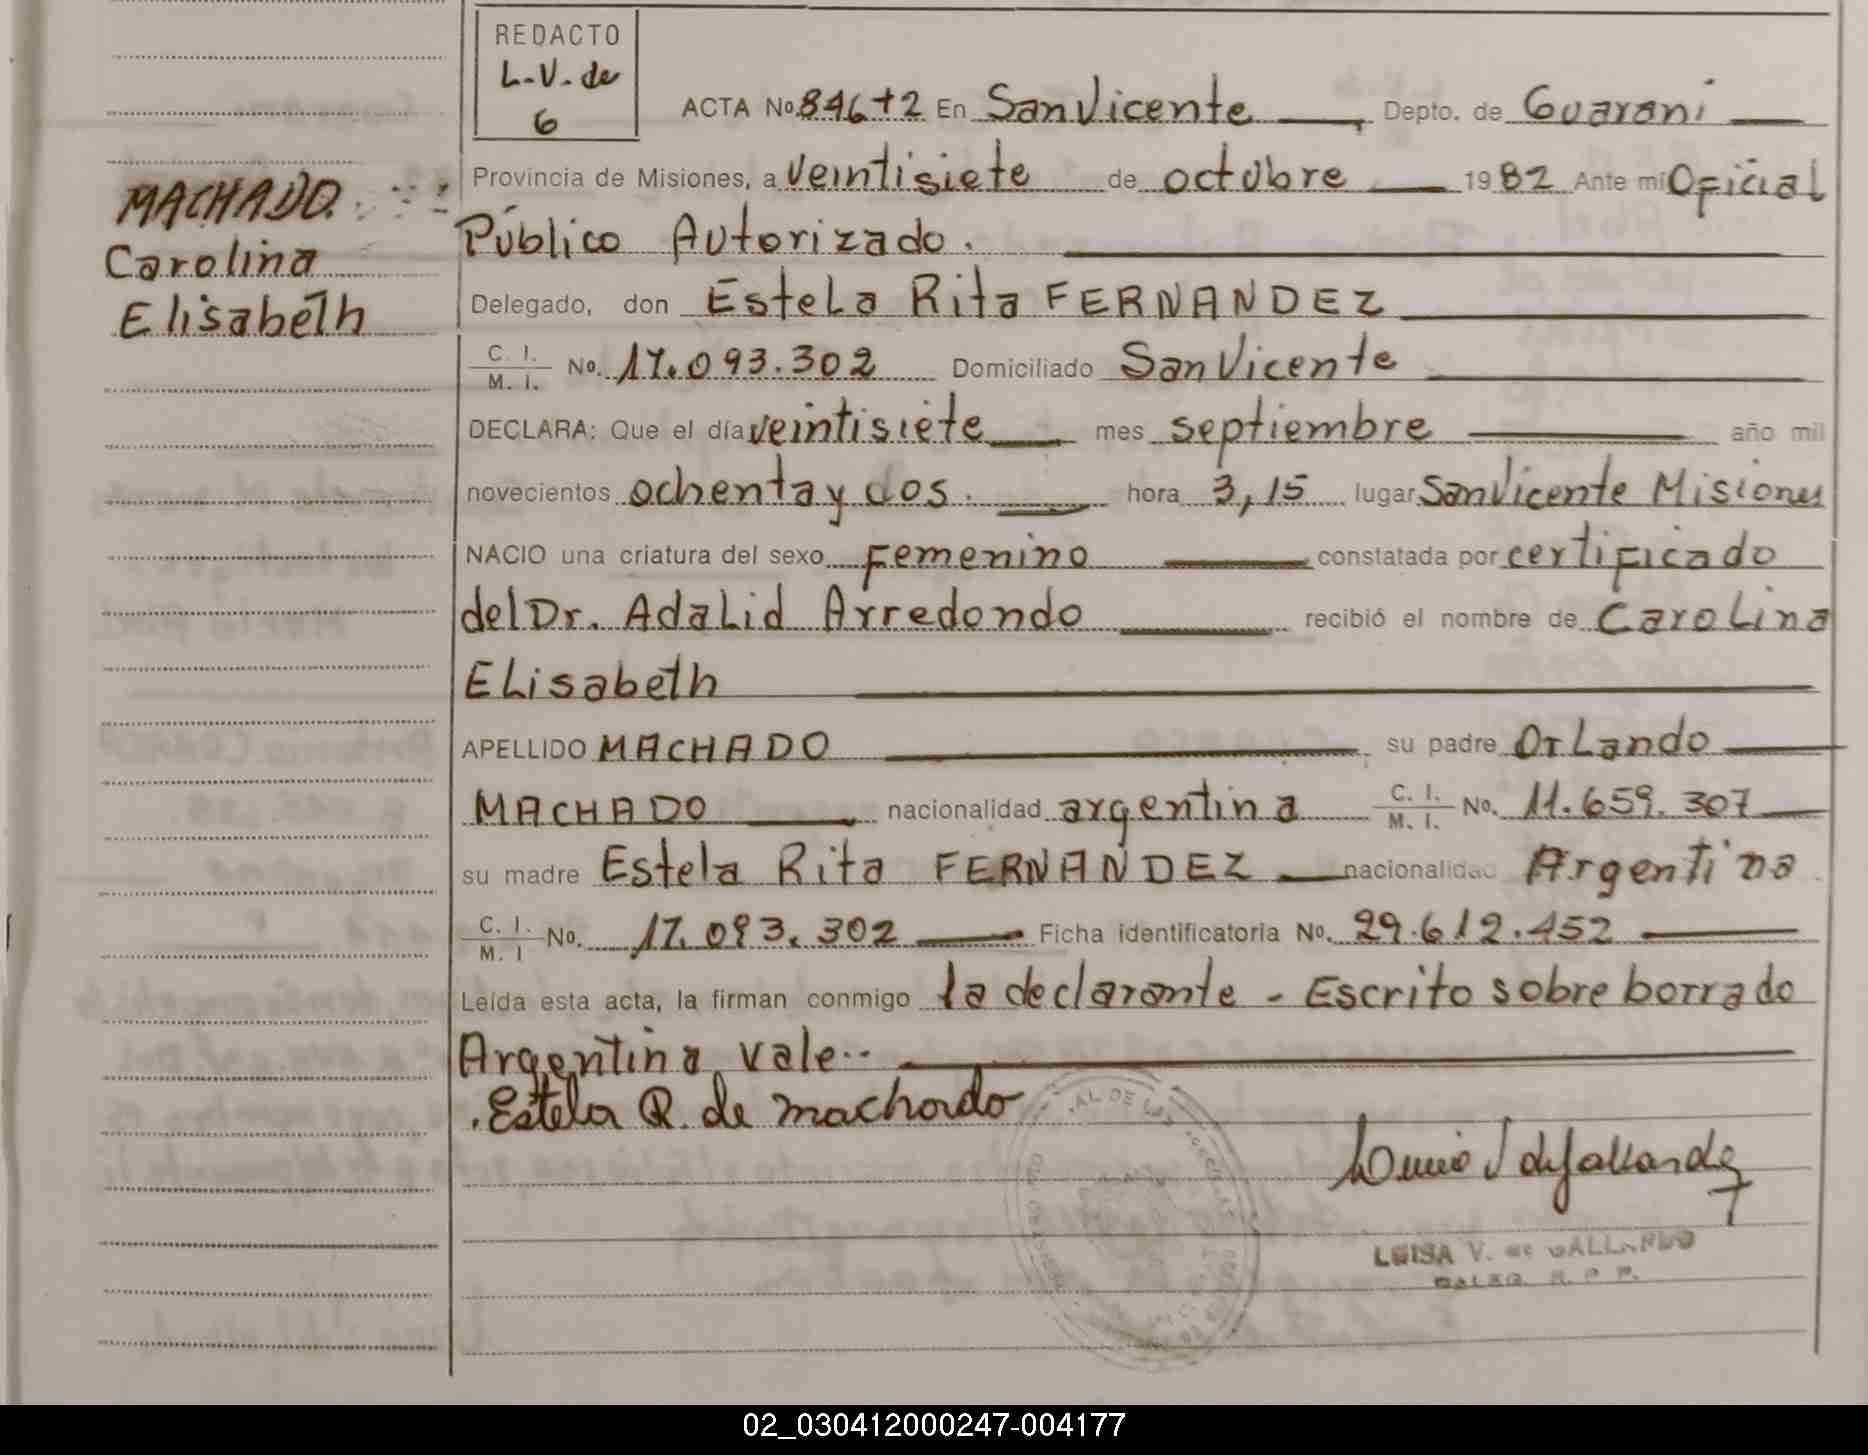 REDACTO
L.V. de
G
ACTA No. 846 t2 En San Vicente Depto. de Guarani
Provincia de Misiones, a veintisiete de octubre 1982 Ante mi Oficial
Público Autorizado.
MACHADO
Carolina
Elisabeth
Delegado, don Estela Rita FERNANDEZ
C. I.
M. I. No. 17.093.302 Domiciliado San Vicente
DECLARA: Que el día veintisiete mes septiembre año mil
novecientos ochenta y dos. hora 3,15 lugar San Vicente Misiones
NACIO una criatura del sexo Femenino constatada por certificado
del Dr. Adalid Arredondo recibió el nombre de Carolina
Elisabeth
APELLIDO MACHADO su padre Orlando
MACHADO nacionalidad argentina C. I.
M. I. No. 11.659.307
su madre Estela Rita FERNANDEZ nacionalidad Argentina
C. I.
M. I No. 17.093.302 Ficha identificatoria No. 29.612.452
Leída esta acta, la firman conmigo la declarante - Escrito sobre borrado
Argentina vale..
Estela R. de machado
LUISA V. de GALLARDO
02_030412000247-004177